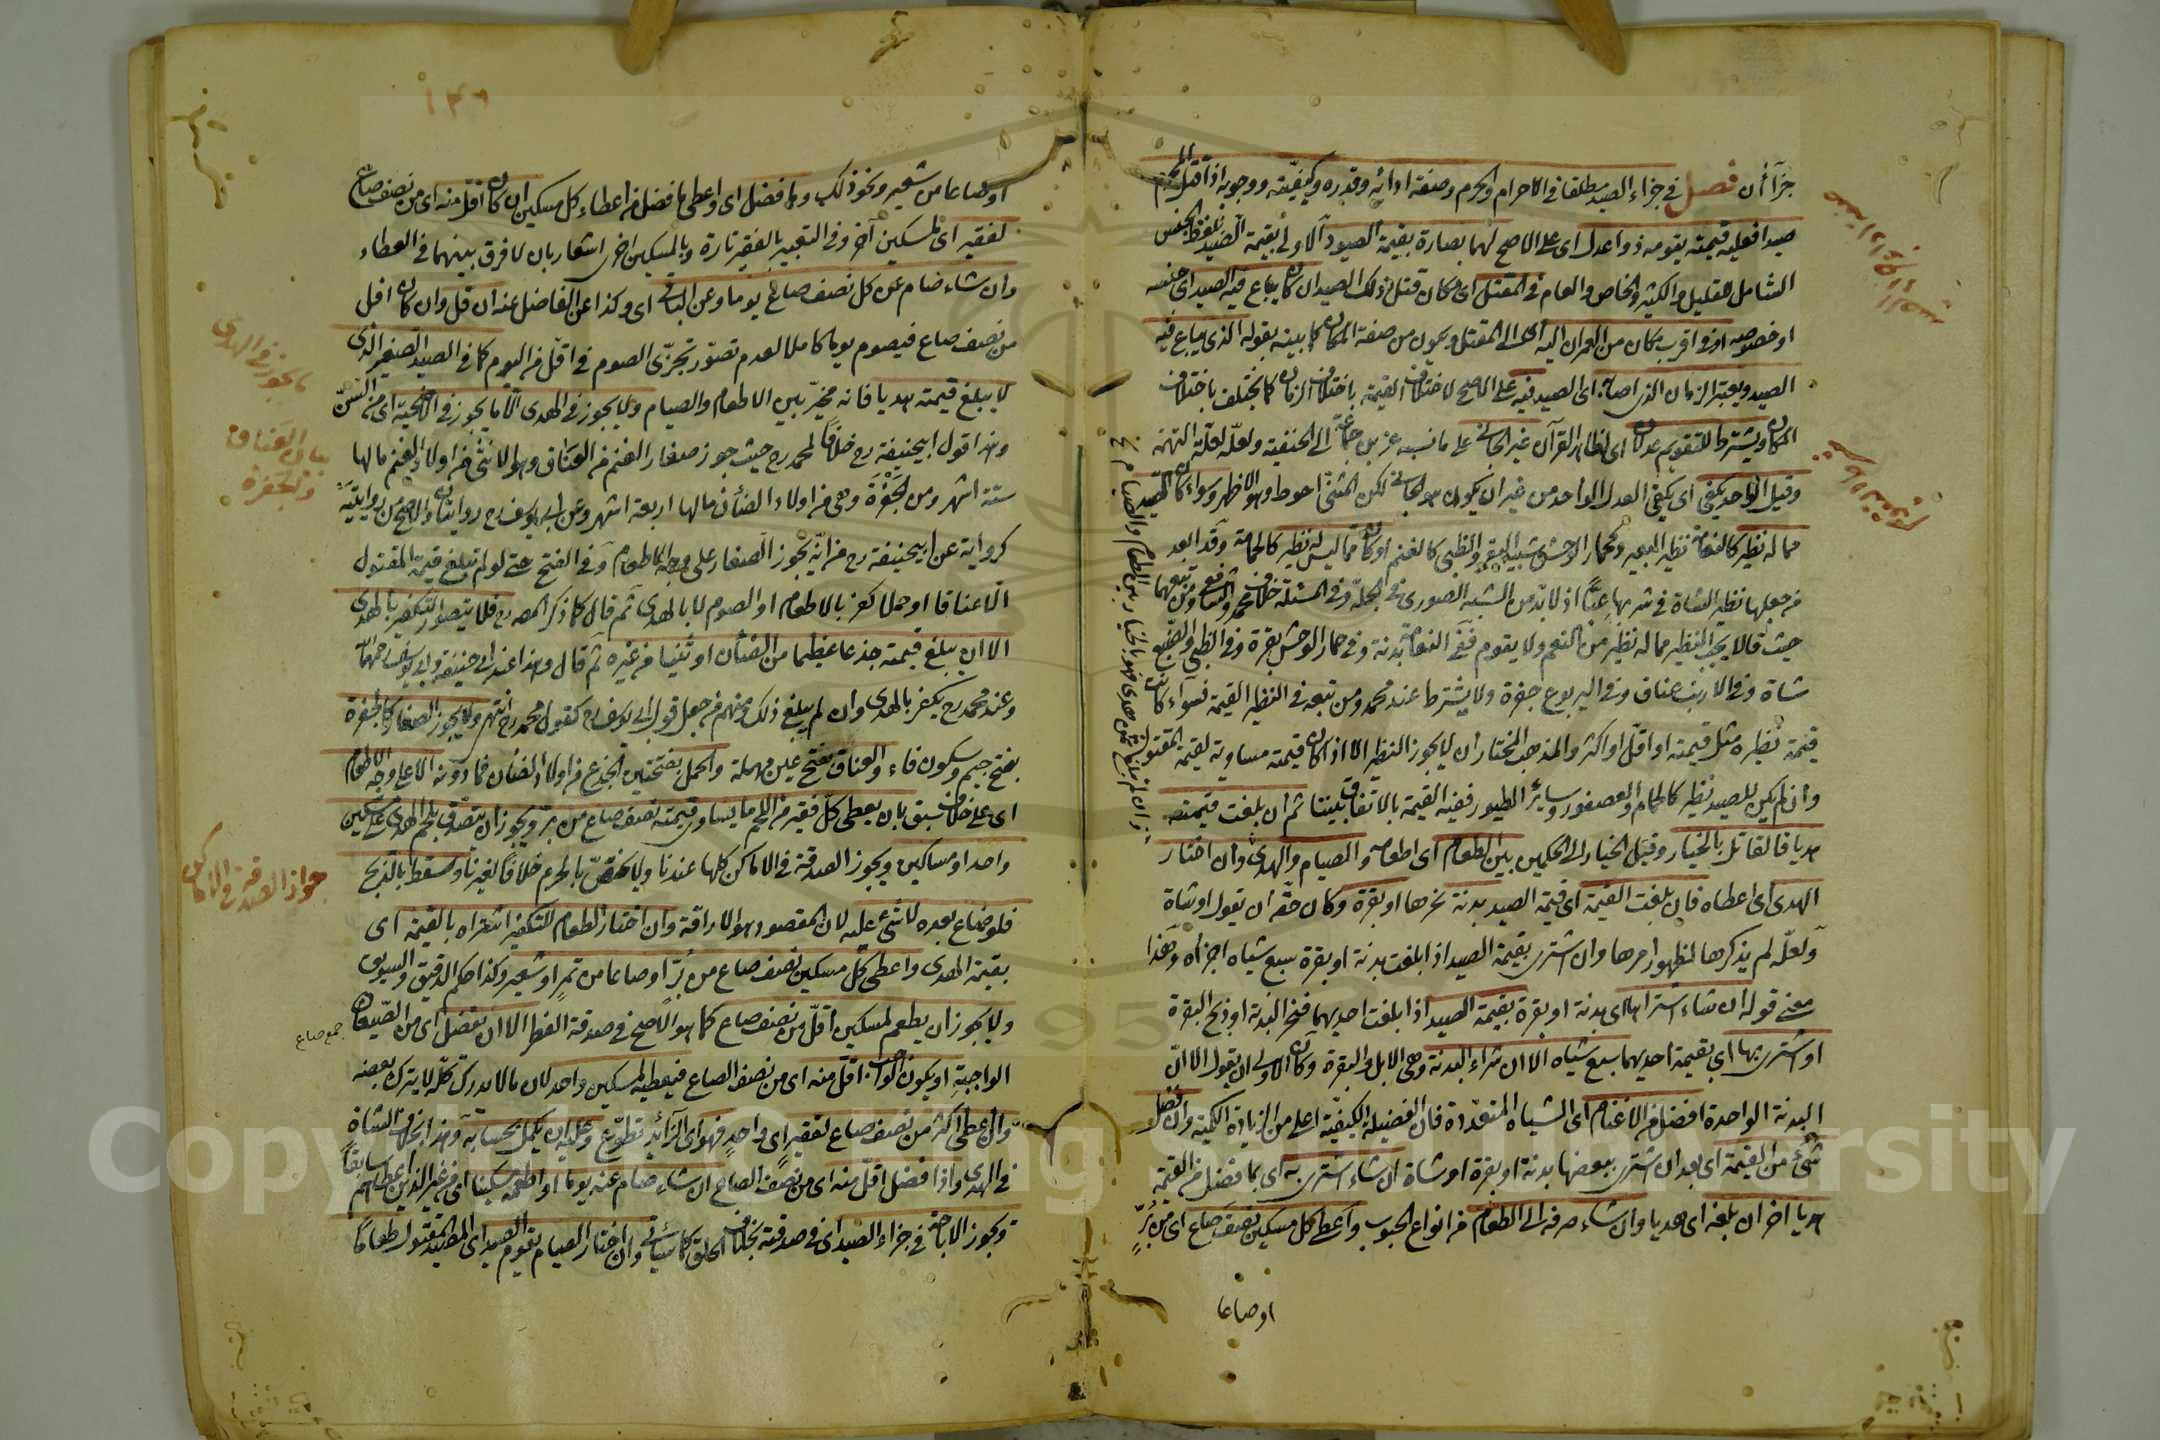 جزاآن فصل في جزاء الصيد مطلقا في الاحرام والحرم وصفة ادائه وقدره وكيفيّته ووجوبه اذا قتل المحرم
صيدا فعليه قيمته يقومه ذوا عدل اي على الاصح لهما بصارة بقيمة الصيود الاولى بقيمة الصيد بلفظ الجنس
الشامل للقليل والكثير والخاص والعام في المقتل اي مكان قتل ذلك الصيد ان كان يباع فيه الصيد اي جنسه
او خصوصه او في اقرب مكان من العمران اليه اي الى المقتل ويكون من صفة المكان كما بينه بقوله الذي يباع فيه
الصيد ويعتبر الزمان الذي اصابه اي الصيد فيه على الاصح لاختلاف القيمة باختلاف الزمان كما يختلف باختلاف
المكان ويشترط للتقويم عدلان اي لظاهر القرآن غير الجاني على ما نسبه عز بن جماعة الى الحنفية ولعلّه لعلّة التهمة
وقيل الواحد يكفي اي يكفي العدل الواحد من غير ان يكون هو الجاني لكن المثنى احوط وهو الاظهر وسواء كان الصيد
مما له نظير كالنعامة نظير البعير وحمار الوحش شبيه البقر والظبي كالغنم او كان مما ليس له نظير كالحمامة وقد ابعد
من جعلها نظير الشاة في شربها عبّاً اذ لا بد من الشبه الصوري في الجملة وفي المسئلة خلاف محمد والشافعي ومن تبعهما
حيث قالا يجب النظير مما له نظير من النعم ولا يقوم ففي النعامة بدنة وفي حمار الوحش بقرة وفي الظبي والضبع
شاة وفي الارنب عناق وفي اليربوع جفرة ولا يشترط عند محمد ومن تبعه في النظير القيمة فسواء كانت
قيمة نظيره مثل قيمته او اقل او اكثر والمذهب المختار ان لا يجوز النظير الا اذا كان قيمته مساوية لقيمة المقتول
وان لم يكن للصيد نظير كالحمام والعصفور وسائر الطيور ففيه القيمة بالاتفاق بيننا ثم ان بلغت قيمته
هديا فالقاتل بالخيار وقيل الخيار الى الحكمين بين الطعام اي اطعامه والصيام والهدي وان اختار
الهدي اي اعطاه فان بلغت القيمة اي قيمة الصيد بدنة نحرها او بقرة وكان حقّه ان يقول او شاة
ولعلّه لم يذكرها لظهور امرها وان اشترى بقيمة الصيد اذا بلغت بدنة او بقرة سبع شياه اجزأه وهذا
معنى قوله ان شاء اشتراها اي بدنة او بقرة بقيمة الصيد اذا بلغت احديهما فنحر البدنة او ذبح البقرة
او اشترى بها اي بقيمة احديهما سبع شياه الا ان شراء البدنة وهي الابل والبقرة وكان الاولى ان يقول الا انّ
البدنة الواحدة افضل من الاغنام اي الشياه المتعددة فان الفضيلة الكيفيّة اعلى من الزيادة الكمية وان فضل
شئ من القيمة اي بعد ان اشترى ببعضها بدنة او بقرة او شاة ان شاء اشترى به اي بما فضل من القيمة
هديا اخر ان بلغه اي هديا وان شاء صرفه الى الطعام من انواع الحبوب واعطى كل مسكين نصف صاع اي من برّ
او صاعا
١٤٦
او صاعا من شعير ونحو ذلك وما فضل اي واعطى ما فضل من اعطاء كل مسكين ان كان اقل منه اي من نصف صاع
لفقير اي لمسكين آخر وفي التعبير بالفقير تارة وبالمسكين اخرى اشعار بان لا فرق بينهما في العطاء
وان شاء صام عن كل نصف صاع يوما وعن الباقي اي وكذا عن الفاضل عنه ان قل وان كان اقل
من نصف صاع فيصوم يوما كاملا لعدم تصوّر تجزّي الصوم في اقل من اليوم كما في الصيد الصغير الذي
لا يبلغ قيمته هديا فانه مخيّر بين الاطعام والصيام ولا يجوز في الهدي الا ما يجوز في الاضحية اي من السنّ
وهذا قول ابي حنيفة رح خلافا لمحمد رح حيث جوز صغار الغنم من العناق وهو الانثى من اولاد الغنم ما لها
ستة اشهر ومن الجفرة وهي من اولاد الضأن ما لها اربعة اشهر وعن ابي يوسف رح روايتان والاصح من روايتيه
كرواية عن ابي حنيفة رح من انّه يجوز الصغار على وجه الاطعام وفي الفتح حتى لو لم تبلغ قيمة المقتول
الا عناقا او حملا كفر بالاطعام او الصوم لا بالهدي ثم قال كما ذكر المص رح فلا يتصور التكفير بالهدي
الا ان يبلغ قيمته جذعا عظيما من الضأن او ثنيا من غيره ثم قال وهذا عند ابي حنيفة وابي يوسف رحمهما
وعند محمد رح يكفر بالهدي وان لم يبلغ ذلك ومنهم من جعل قول ابي يوسف رح كقول محمد رح انتهى ولا يجوز الصغار كالجفرة
بفتح جيم وسكون فاء والعناق بفتح عين مهملة والحمل بفتحتين الجذع من اولاد الضأن فما دونه الا على وجه الاطعام
اي على خلاف سبق بان يعطي كل فقير من اللحم ما يساوي قيمته نصف صاع من بر ويجوز ان يتصدق بلحم الهدي على مسكين
واحد او مساكين ويجوز الصدقة في الاماكن كلها عندنا ولا يختص بالحرم خلافا لغيرنا ويسقط بالذبح
فلو ضاع بعده لا شئ عليه لان المقصود هو الاراقة وان اختار الطعام للتكفير اشتراه بالقيمة اي
بقيمة الهدي واعطى كل مسكين نصف صاع من برّ او صاعا من تمر او شعير وكذا حكم الدقيق والسويق
ولا يجوز ان يطعم لمسكين اقل من نصف صاع كما هو الاصح في صدقة الفطر الا ان يفضل اي من الصيعان
الواجبة او يكون الواجب اقل منه اي من نصف الصاع فيعطيه لمسكين واحد لان ما لا يدرك كله لا يترك بعضه
وان اعطى اكثر من نصف صاع لفقير اي واحد فهو اي الزائد تطوّع وعليه ان يكمل بحسابه وهذا بخلاف الشاة
في الهدي واذا فضل اقل منه اي من نصف الصاع ان شاء صام عنه يوما او اطعمه مسكينا اي من غير الذين اعطاهم سابقا
وتجوز الاباحة في جزاء الصيد اي في صدقته بخلاف الحلق كما سيأتي وان اختار الصيام تقوم الصيد اي المصيد المقتول طعاما
ما يجوز في الهدي
بيان العناق
والجفرة
جواز الصدقة في الاماكن
جمع صاع
Copyright © King Saud University